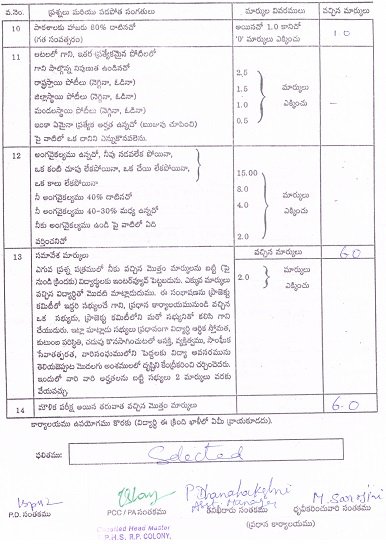 వ.నెం. ప్రశ్నలు మరియు పడపోత సంగతులు మార్కుల వివరములు వచ్చిన మార్కులు
10 పాఠశాలకు హాజరు 80% దాటినదో అయినచో 1.0 కానిచో 1.0
(గత సంవత్సరం) '0' మార్కులు ఎక్కించు
11 ఆటలలో గాని, ఇతర ప్రత్యేకమైన పోటీలలో
గాని పాల్గొన్న నిపుణత ఉండినచో 2.5
రాష్ట్రస్థాయి పోటీలు (నెగ్గినా, ఓడినా) 1.5 మార్కులు
జిల్లాస్థాయి పోటీలు (నెగ్గినా, ఓడినా) 1.0 ఎక్కించు –
మండలస్థాయి పోటీలు (నెగ్గినా, ఓడినా) 0.5
ఇంకా ఏమైనా ప్రత్యేక అర్హత ఉన్నచో (ఋజువు చూపించి)
పై వాటిలో ఒక దానిని ఎన్నుకొనవలెను.
12 అంగవైకల్యము ఉన్నదో, నీవు నడవలేక పోయినా,
ఒక కంటి చూపు లేకపోయినా, ఒక చేయి లేకపోయినా, 15.00
ఒక కాలు లేకపోయినా 8.0
నీ అంగవైకల్యము 40% దాటినదో 4.0 మార్కులు
నీ అంగవైకల్యము 40-30% మధ్య ఉన్నదో ఎక్కించు
నీకు అంగవైకల్యము ఉండి పై వాటిలో ఏది 2.0
వర్తించనిచో
వచ్చిన మార్కులు 6.0
13 సమావేశ మార్కులు
ఎగువ ప్రశ్న పత్రములో నీకు వచ్చిన మొత్తం మార్కులను బట్టి (పై 2.0 మార్కులు
నుండి క్రిందకు) విద్యార్థులకు ఇంటర్వ్యూస్ పెట్టబడును. ఎక్కువ మార్కులు ఎక్కించు
వచ్చిన విద్యార్థితో మొదటి మాట్లాడుదుము. ఈ సంభాషణను ప్రాజెక్టు
కమిటీలో ఇద్దరు సభ్యులచే గాని, ప్రధాన కార్యాలయమునుండి వచ్చిన
ఒక సభ్యుడు, ప్రాజెక్టు కమిటీలోని మరో సభ్యునితో కలిసి గాని
చేయుదురు. ఇట్లా మాట్లాడు సభ్యులు ప్రధానంగా విద్యార్థి ఆర్థిక స్తోమత,
కుటుంబ పరిస్థితి, చదువు కొనసాగించుటలో ఆసక్తి, వ్యక్తిత్వము, సాంఘిక
సేవాతత్పరత, వారిసంఘములోని పెద్దలకు విద్యా అవసరమును
తెలియజెప్పుట మొదలగు అంశములలో దృష్టిని కేంద్రీకరించి చర్చించెదరు.
ఇందులో వారి వారి అర్హతలను బట్టి సభ్యులు 2 మార్కులు వరకు
వేయవచ్చు.
14 మౌళిక పరీక్ష అయిన తరువాత వచ్చిన మొత్తం మార్కులు 6.0
కార్యాలయము ఉపయోగము కొరకు (విద్యార్థి ఈ క్రింది ఖాళీలో ఏమీ వ్రాయకూడదు).
ఫలితము: Selected
P. Dhanalakshmi M. Sarojini
P.D. సంతకము PCC / PA సంతకము ధృవీకరించువారి సంతకము
(ప్రధాన కార్యాలయము)
Head Master
P.H.S. R.P. COLONY,